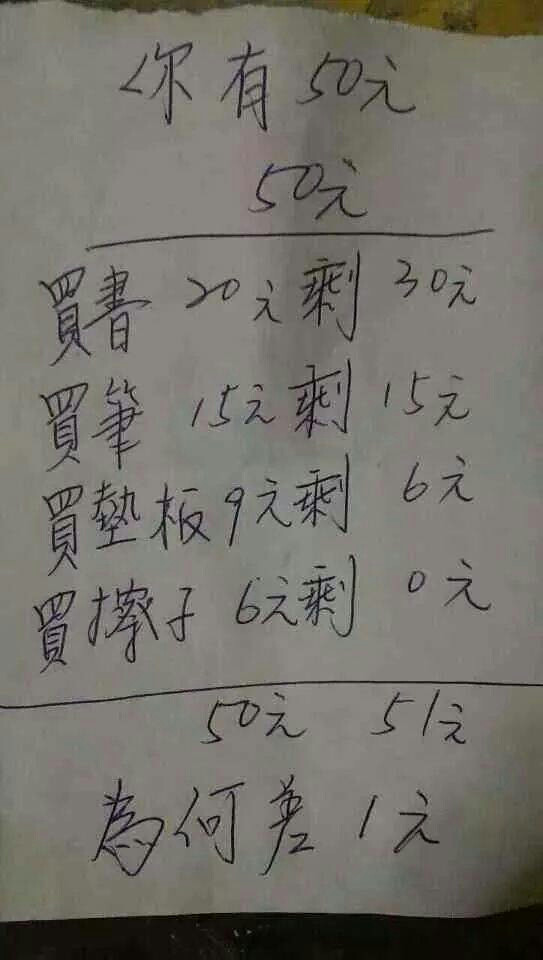 你有50元
50元
買書 20元剩 30元
買筆 15元剩 15元
買墊板9元剩 6元
買擦子 6元剩 0元
50元 51元
為何差1元